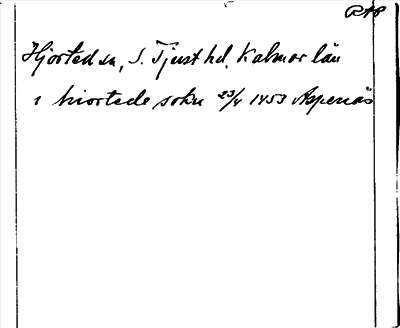 RAP
Hjorted sn, S. Tjust hd, Kalmar län
i hiortede sokn 23/4 1453 Aspenäs